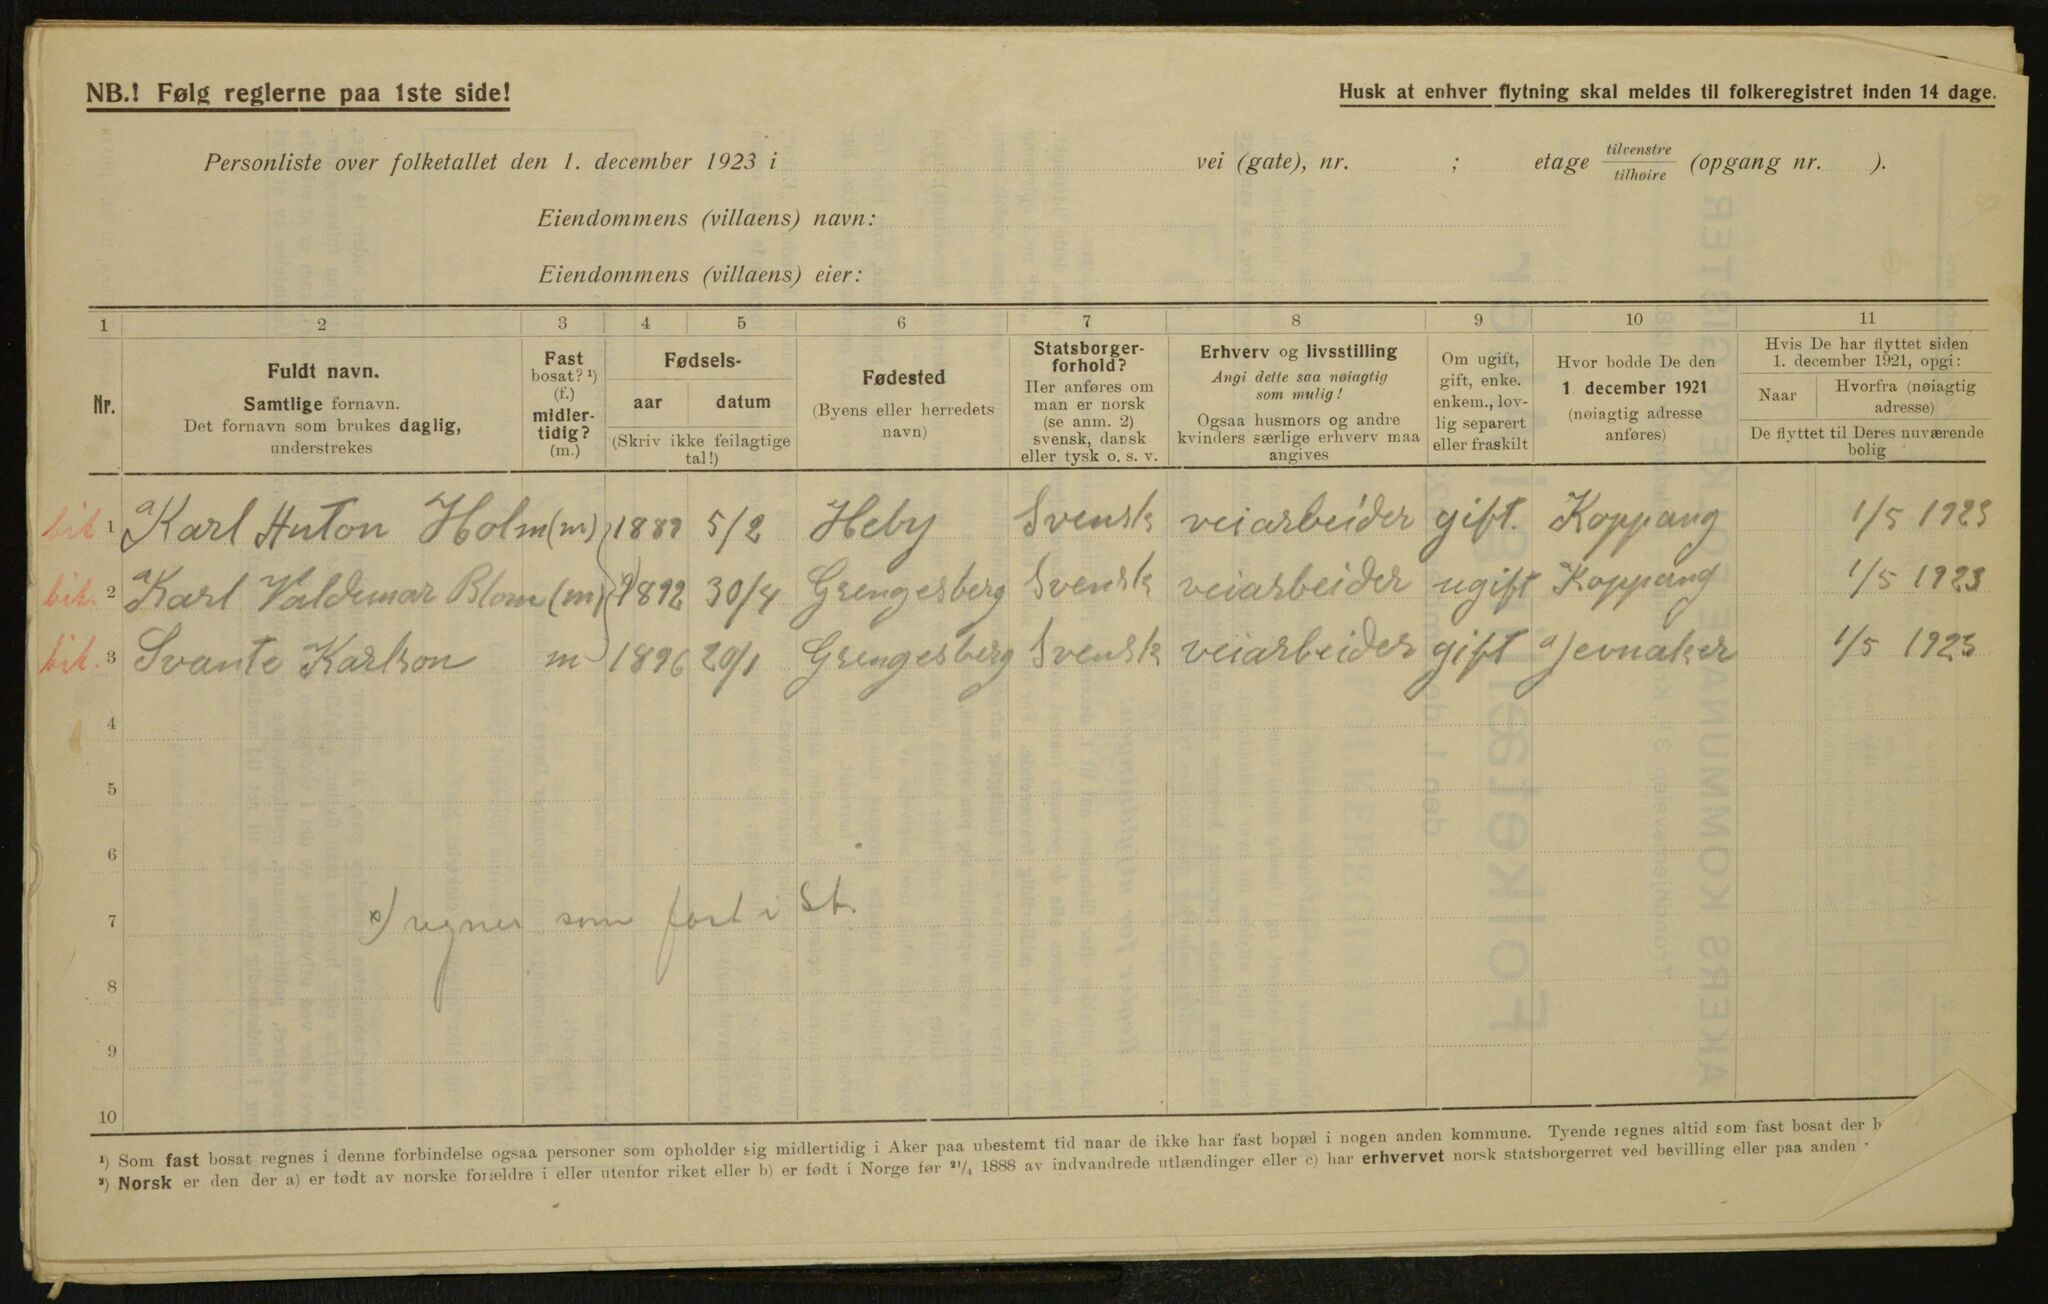 NB.! Følg reglerne paa 1ste side!
Husk at enhver flytning skal meldes til folkeregistret inden 14 dage.
Personliste over folketallet den 1. december 1923 i vei (gate), nr. ; etage tilvenstre tilhøire (opgang nr. ).
Eiendommens (villaens) navn:
Eiendommens (villaens) eier:
1 2 3 4 5 6 7 8 9 10 11
Nr.
Fuldt navn.
Samtlige fornavn.
Det fornavn som brukes daglig,
understrekes
Fast
bosat? ¹)
(f.)
midler-
tidig?
(m.)
Fødsels-
aar datum
(Skriv ikke feilagtige
tal!)
Fødested
(Byens eller herredets
navn)
Statsborger-
forhold?
Her anføres om
man er norsk
(se anm. 2)
svensk, dansk
eller tysk o. s. v.
Erhverv og livsstilling
Angi dette saa nøiagtig
som mulig!
Ogsaa husmors og andre
kvinders særlige erhverv maa
angives
Om ugift,
gift, enke.
enkem., lov-
lig separert
eller fraskilt
Hvor bodde De den
1 december 1921
(nøiagtig adresse
anføres)
Hvis De har flyttet siden
1. december 1921, opgi:
Naar
Hvorfra (nøiagtig
adresse)
De flyttet til Deres nuværende
bolig
bit 1 Karl Anton Holm (m) 1889 5/2 Heby Svensk veiarbeider gift. Koppang 1/5 1923
bit. 2 Karl Valdemar Blom (m) 1892 30/4 Grengesberg Svensk veiarbeider ugift Koppang 1/5 1923
bit. 3 Svante Karlson m 1896 20/1 Grengesberg Svensk veiarbeider gift Jevnaker 1/5 1923
4
5
6
7 x) regnes som fast i St.
8
9
10
¹) Som fast bosat regnes i denne forbindelse ogsaa personer som opholder sig midlertidig i Aker paa ubestemt tid naar de ikke har fast bopæl i nogen anden kommune. Tyende regnes altid som fast bosat der b
²) Norsk er den der a) er født av norske forældre i eller utenfor riket eller b) er født i Norge før ²¹/₄ 1888 av indvandrede utlændinger eller c) har erhvervet norsk statsborgerret ved bevilling eller paa anden